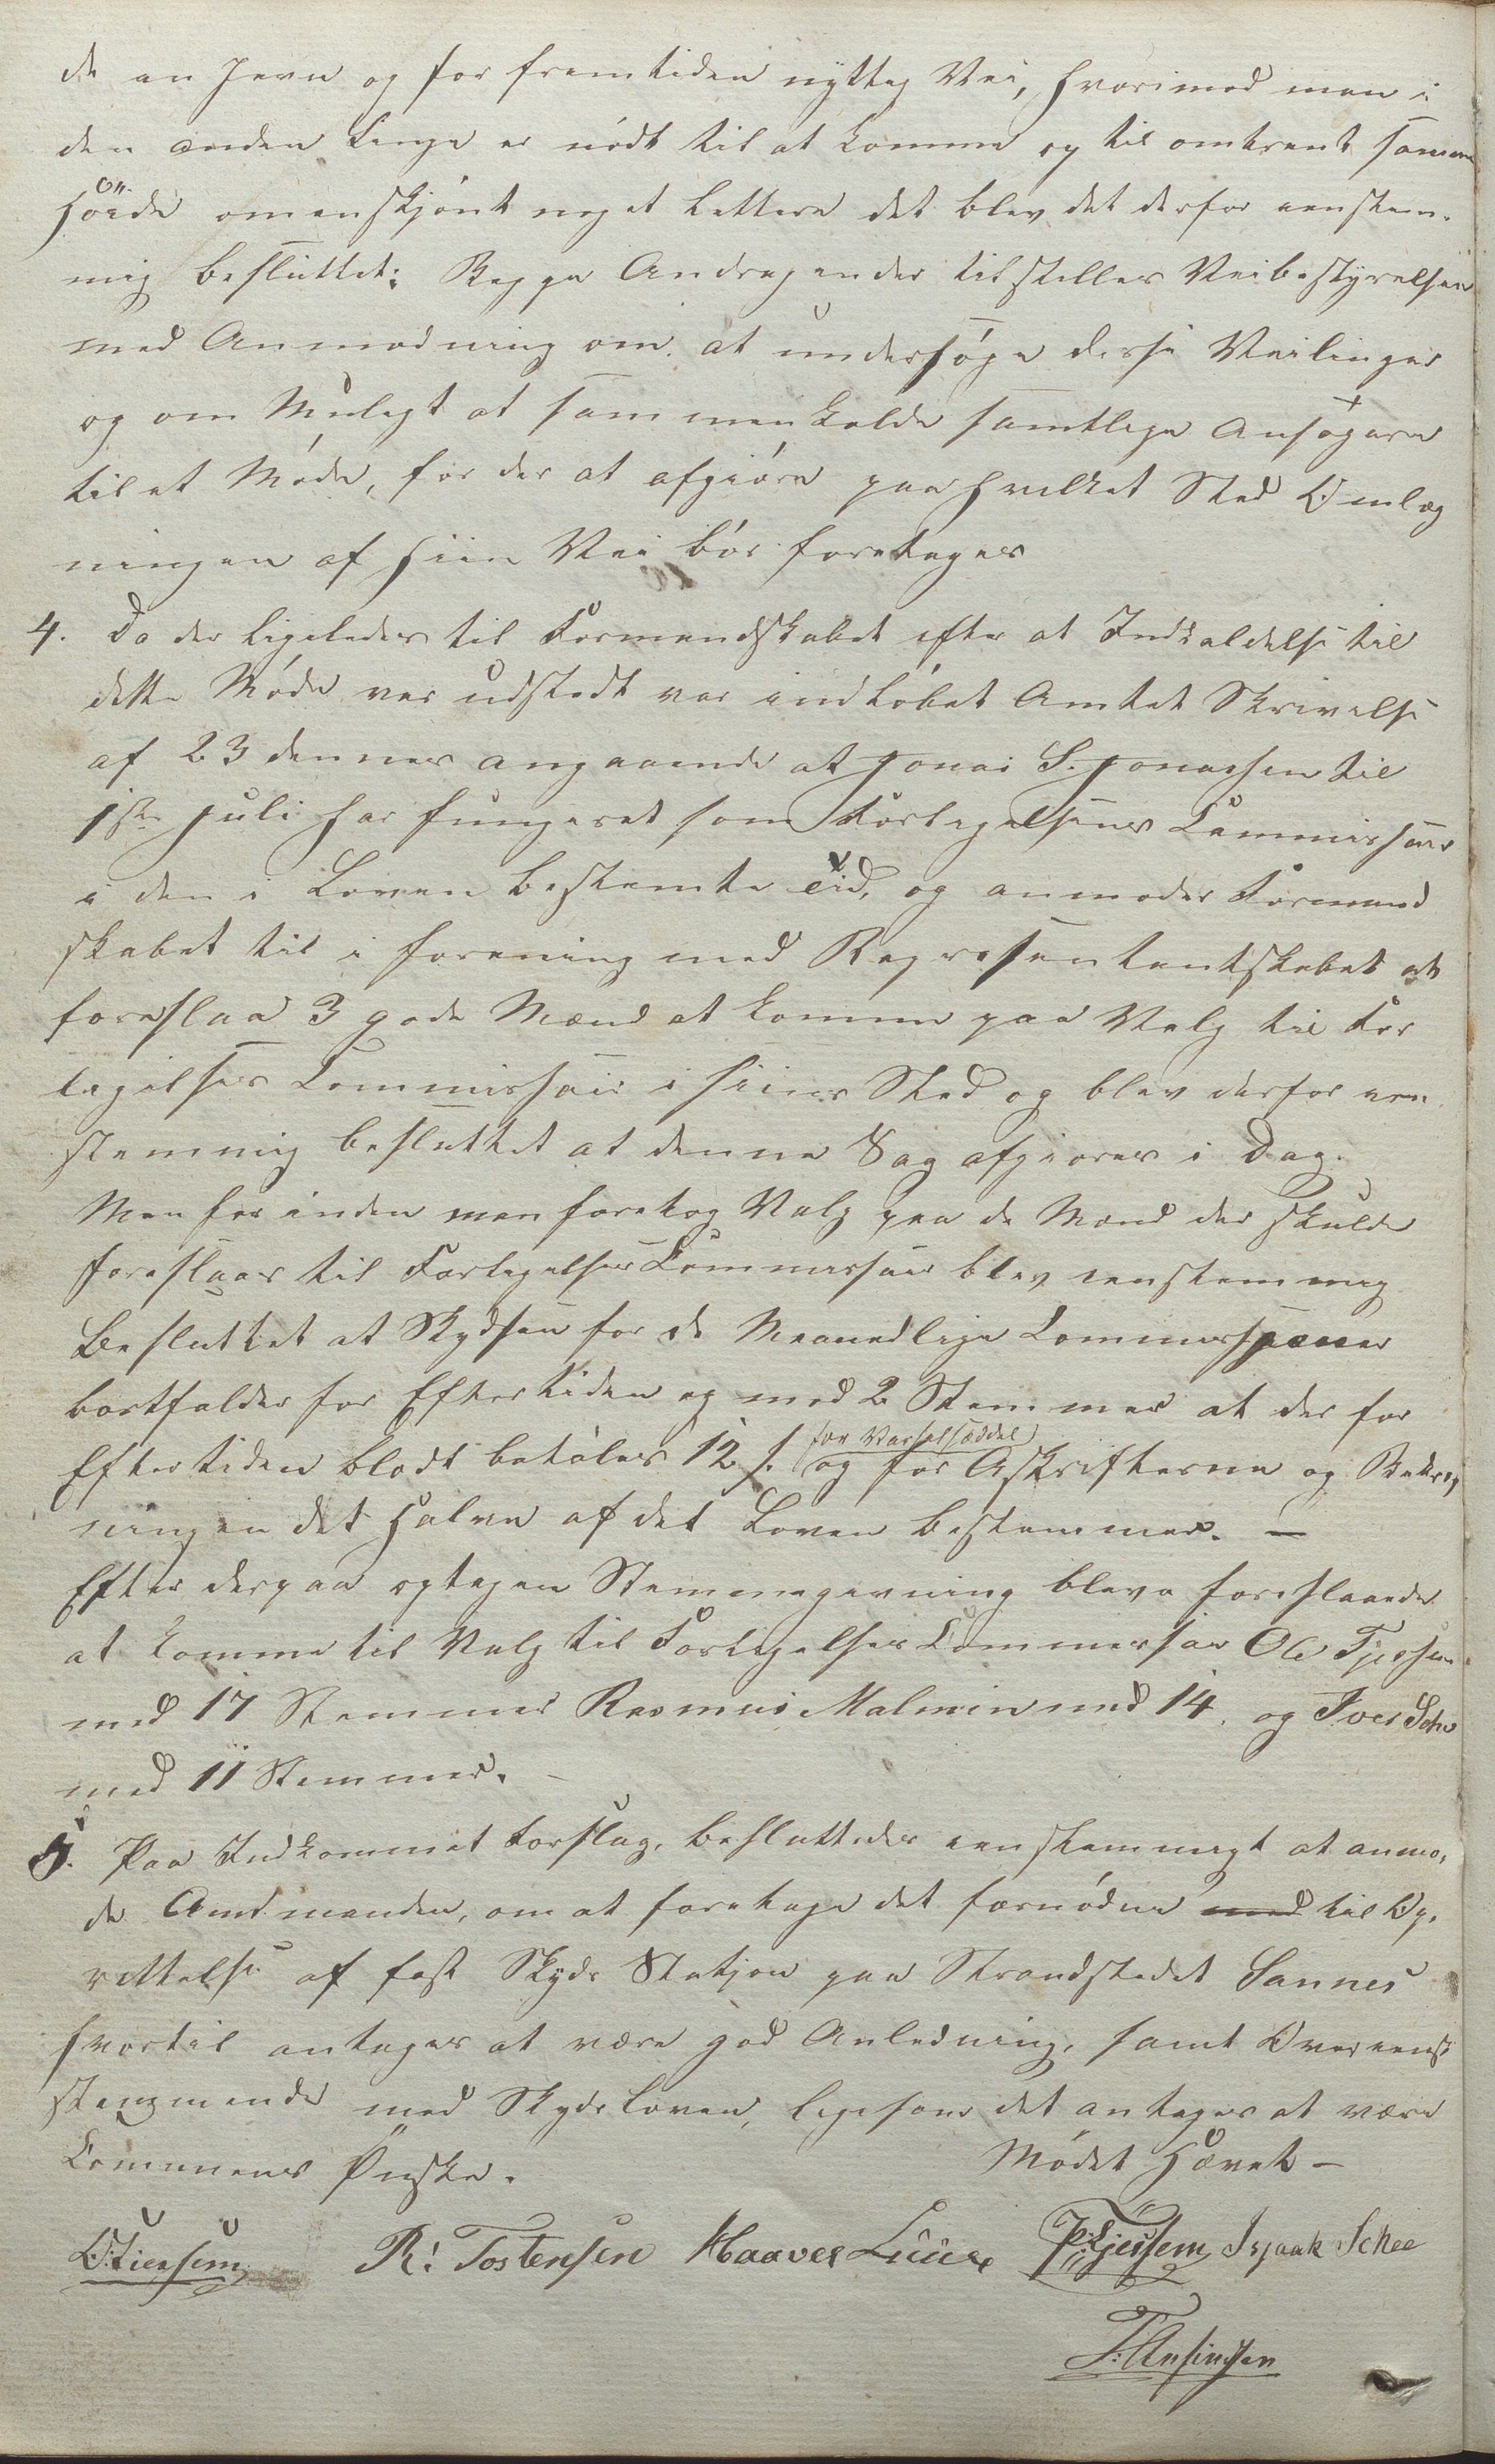 de en Jevn og for fremtiden nyttig Vei, hvorimod man i
den anden Linge er nødt til at komme op til omtrent samme
Høide omenskjønt noget lettere det blev det derfor eenstem-
mig besluttet: Begge Andragender tilstilles Veibestyrelsen
med Anmodning om at undersøge disse Veilinger
og om Muligt at sammenkalde samtlige Ansøgere
til et Møde, for der at afgjøre paa hvilket Sted Omlæg
ningen af hiin Vei bør foretages
4. Da der ligeledes til Formandskabet efter at Indkaldelse til
dette Møde var udstedt var indløbet Amtet Skrivelse
af 23 dennes angaaende at Jonas S. Jonassen til
1ste Juli har fungeret som Forligelsens Commissair
i den i Loven bestemte Tid, og anmoder Formand
skabet til i forening med Represententskabet at
foreslaa 3 gode Mænd at komme paa Valg til For
ligelses Commissair i hiins Sted og blev derfor een
stemmig besluttet at denne Sag afgiøres i Dag.
Men før inden man foretog Valg paa de Mænd der skulde
foreslaaes til Forligelses Commissair blev eenstemmig
Besluttet at Skydsen for de Maanedlige Commissioner
bortfalder for Eftertiden og med 2 Stemmer at der for
Eftertiden blodt betales 12 s. for Varselseddel og for Afskrifterne og Bekræf
ningen det halve af det Loven bestemmer. —
Efter derpaa optagen Stemmegivning bleve foreslaaede
at komme til Valg til Forligelses Commissair Ole Tjessem
med 17 Stemmer Rasmus Malmin med 14. og Iver Scho
med 11 Stemmer. —
5. Paa Indkommet Forslag, besluttedes eenstemmigt at anmo,
de Amtmanden, om at foretage det fornødne med til Op,
rettelse af fast Skyds Station paa Strandstedet Sannes
hvortil antages at være god Anledning, samt Overeens
stemmende med Skydsloven, ligesom det antages at være
Communens Ønske. Mødet Hævet —
O. Tjessem R. Tostensen Haaver Luura P. Tjessem Isaak Schee
T. Asseimsen